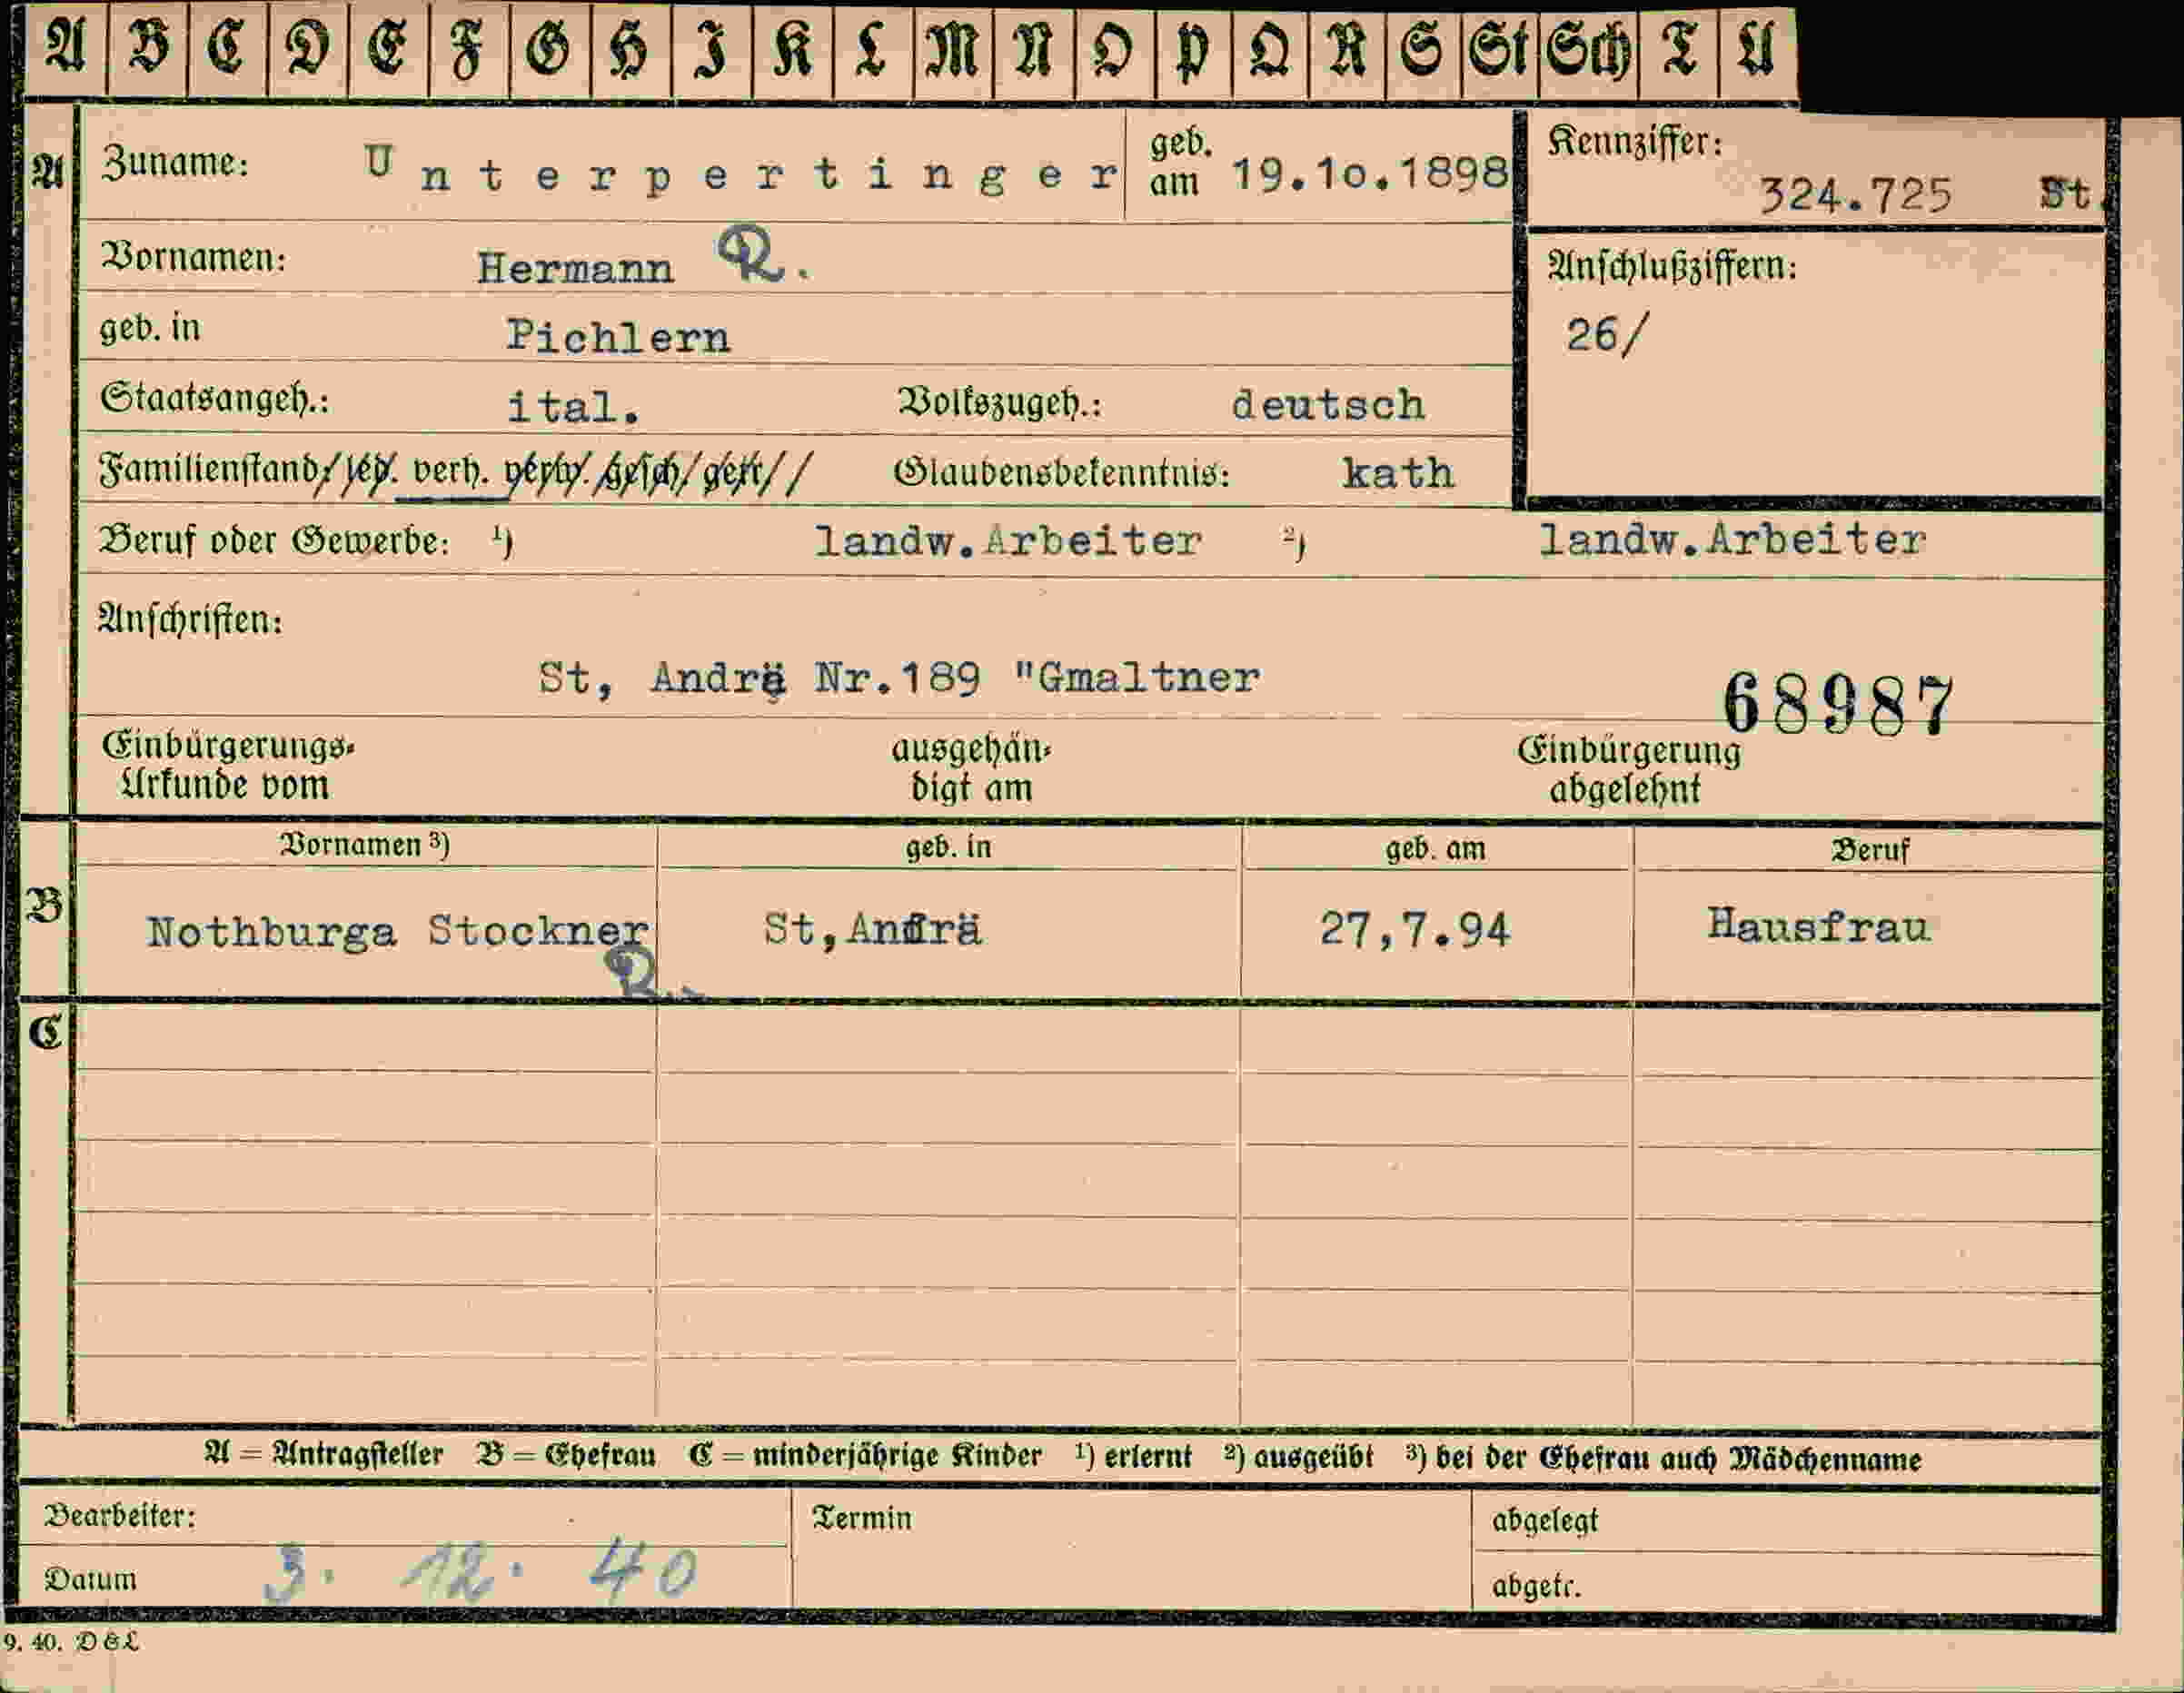 A B C D E F G H I K L M N O P Q R S St Sch T U
A Zuname: Unterpertinger geb. am 19.1o.1898 Kennziffer: 324.725 St.
Vornamen: Hermann R.
Anschlußziffern:
geb. in Pichlern 26/
Staatsangeh.: ital. Volkszugeh.: deutsch
Familienstand led. verh. verw. gesch. getr. Glaubensbekenntnis: kath
Beruf oder Gewerbe: 1) landw.Arbeiter 2) landw.Arbeiter
Anschriften:
St, Andrä Nr.189 "Gmaltner 68987
Einbürgerungs- ausgehän- Einbürgerung
Urkunde vom digt am abgelehnt
Vornamen 3) geb. in geb. am Beruf
B Nothburga Stockner St,Andrä 27,7.94 Hausfrau
R.
C
A = Antragsteller B = Ehefrau C = minderjährige Kinder 1) erlernt 2) ausgeübt 3) bei der Ehefrau auch Mädchenname
Bearbeiter: Termin abgelegt
Datum 3. 12. 40 abgetr.
9. 40. D & L